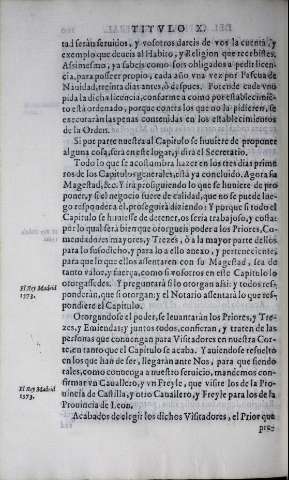 TITVLO X.
tad seràn seruidos, y vosotros dareis de vos la cuenta, y
exemplo que deueis al Habito, y Religion que recebistes.
Assimesmo, ya sabeis como sois obligados a pedir licen-
cia, para posseer propio, cada año vna vez por Pascua de
Nauidad, treinta dias antes, ò despues. Por ende cada vno
pida la dicha licencia, conforme a como por establecimiẽ-
to està ordenado, porque contra los que no la pidieren, se
executaràn las penas contenidas en los establecimientos
de la Orden.
Si por parte nuestra al Capitulo se huuiere de proponer
alguna cosa, serà en este lugar, y dirà el Secretario.
Todo lo que se acostumbra hazer en los tres dias prime
ros de los Capitulos generales, està ya concluido. Agora su
Magestad, &c. Y irà prosiguiendo lo que se huuiere de pro
poner, y si el negocio fuere de calidad, que no se puede lue-
go responder a èl, proseguirà diziendo: Y porque si todo el
Capitulo se huuiesse de detener, os seria trabajo, y costa:
por lo qual serà bien que otorgueis poder a los Priores, Co-
mendadores mayores, y Trezes, ò a la mayor parte dellos
para lo susodicho, y para lo a ello anexo, y perteneciente,
para que lo que ellos assentaren con su Magestad, sea de
tanto valor, y fuerça, como si vosotros en este Capitulo lo
otorgassedes. Y preguntarà si lo otorgan assi: y todos res-
ponderàn, que si otorgan; y el Notario assentarà lo que res-
pondiere el Capitulo.
El Rey Madrid
1573.
Otorgandose el poder, se leuantaràn los Priores, y Tre-
zes, y Emiendas; y juntos todos, confieran, y traten de las
personas que conuengan para Visitadores en nuestra Cor-
te, en tanto que el Capitulo se acaba. Y auiendose resuelto
en los que han de ser, llegaràn ante Nos, para que siendo
tales, como conuenga a nuestro seruicio, mandemos con-
firmar vn Cauallero, y vn Freyle, que visite los de la Pro-
uincia de Castilla, y otro Cauallero, y Freyle para los de la
Prouincia de Leon.
El Rey Madrid
1573.
Acabados de elegir los dichos Visitadores, el Prior que
pre-